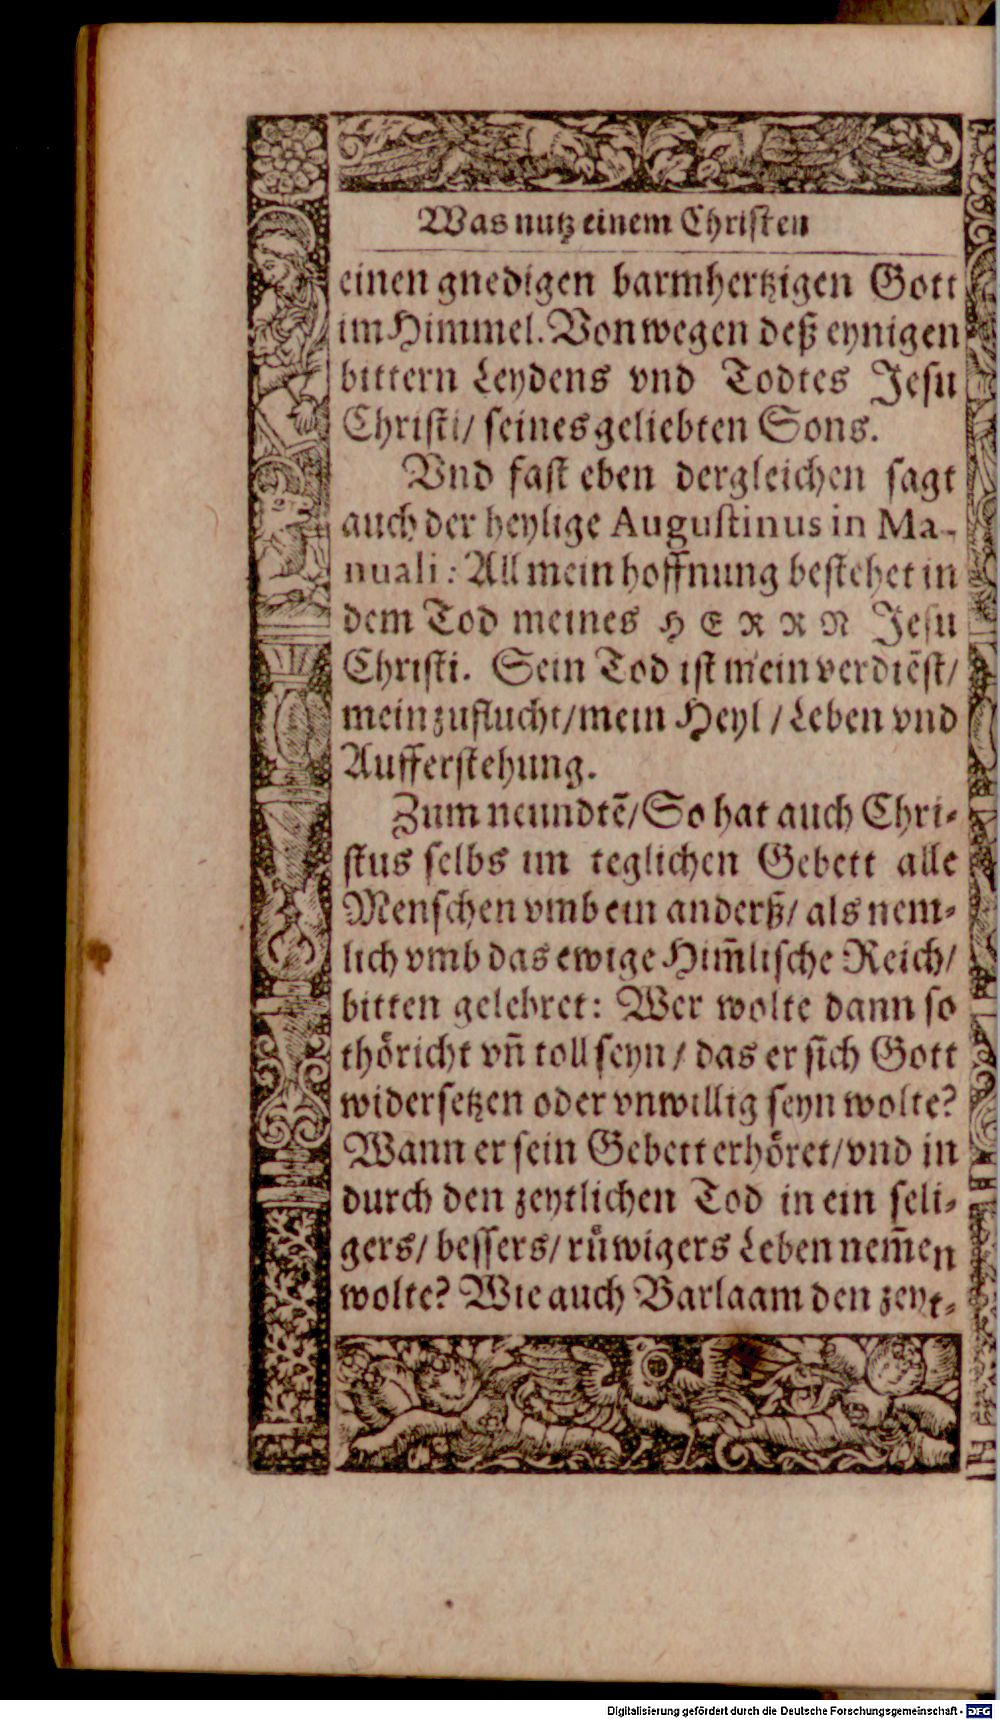 Was nutz einem Christen
einen gnedigen barmhertzigen Gott
im Himmel. Von wegen deß eynigen
bittern Leydens vnd Todtes Jesu
Christi/ seines geliebten Sons.
Vnd fast eben dergleichen sagt
auch der heylige Augustinus in Ma-
nuali: All mein hoffnung bestehet in
dem Tod meines HERRN Jesu
Christi. Sein Tod ist mein verdiẽst/
mein zuflucht/ mein Heyl/ Leben vnd
Aufferstehung.
Zum neundtẽ/ So hat auch Chri-
stus selbs im teglichen Gebett alle
Menschen vmb ein anderß/ als nem-
lich vmb das ewige Him̃lische Reich/
bitten gelehret: Wer wolte dann so
thoͤricht vñ toll seyn/ das er sich Gott
widersetzen oder vnwillig seyn wolte?
Wann er sein Gebett erhoͤret/ vnd in
durch den zeytlichen Tod in ein seli-
gers/ bessers/ ruͤwigers Leben nem̃en
wolte? Wie auch Barlaam den zeyt-
Digitalisierung gefördert durch die Deutsche Forschungsgemeinschaft - DFG